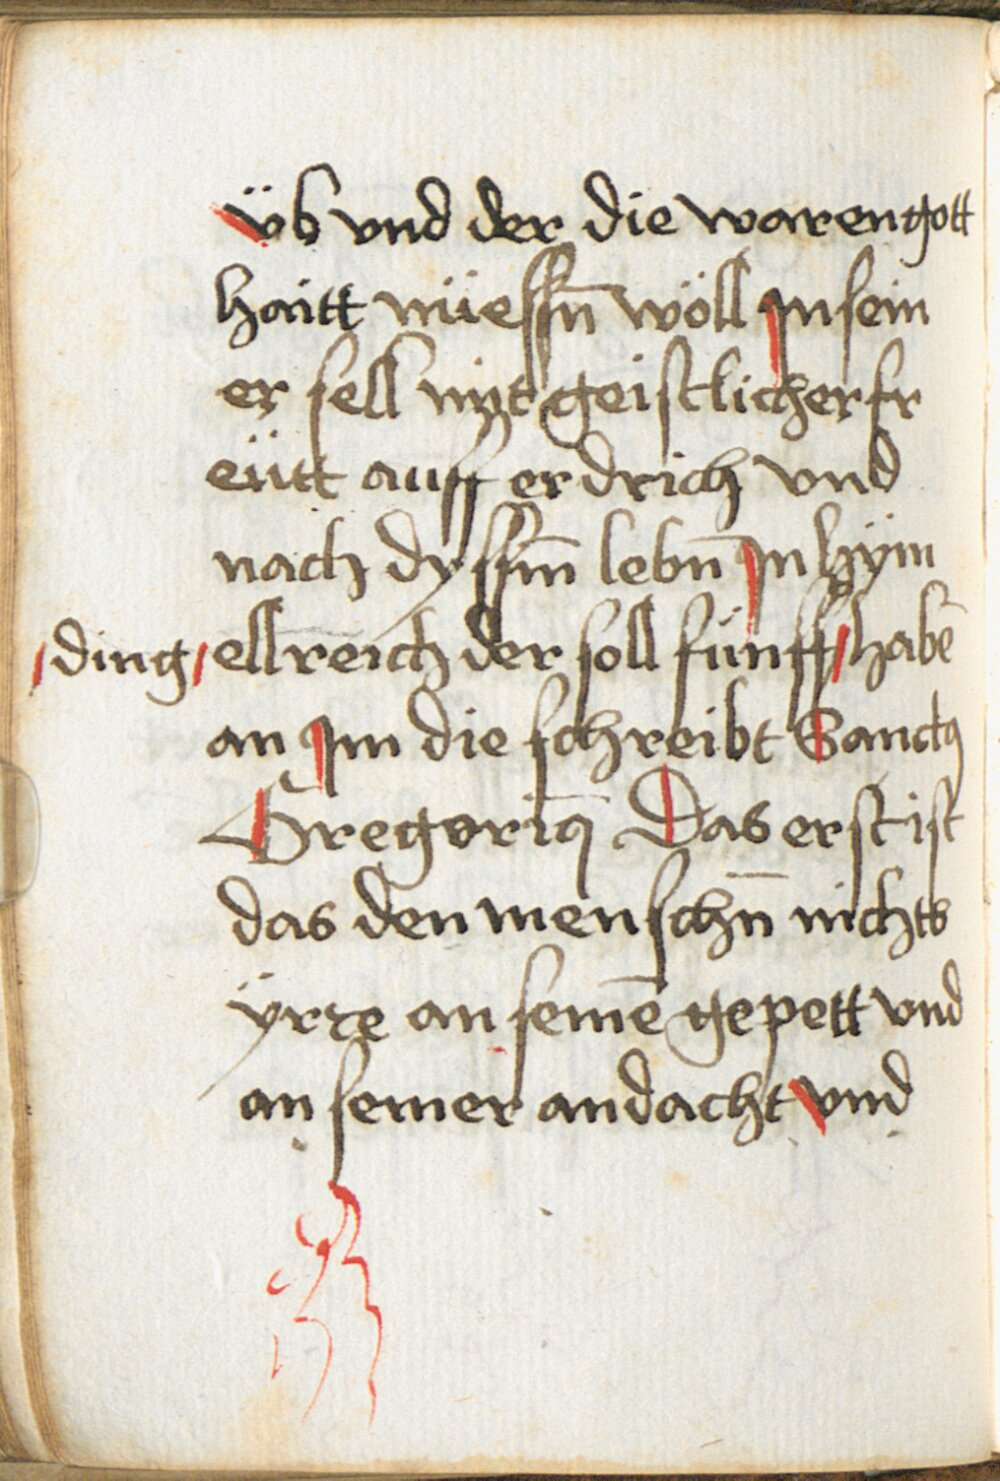 üb vnd der die waren gott
haitt nüessn̄ wöll Jn sein
er sell myt geistlicher fr
eütt auff erdrich vnd
nach dyssm̄ lebn̄ Jn hÿm
/ding/ ellreich der soll fünff/habē
an Jm die schreibt Sanctꝰ
Gregoriꝰ Das erst ist
das den menschn̄ nichts
ÿrre an seinē gepett vnd
an seiner andacht vnd